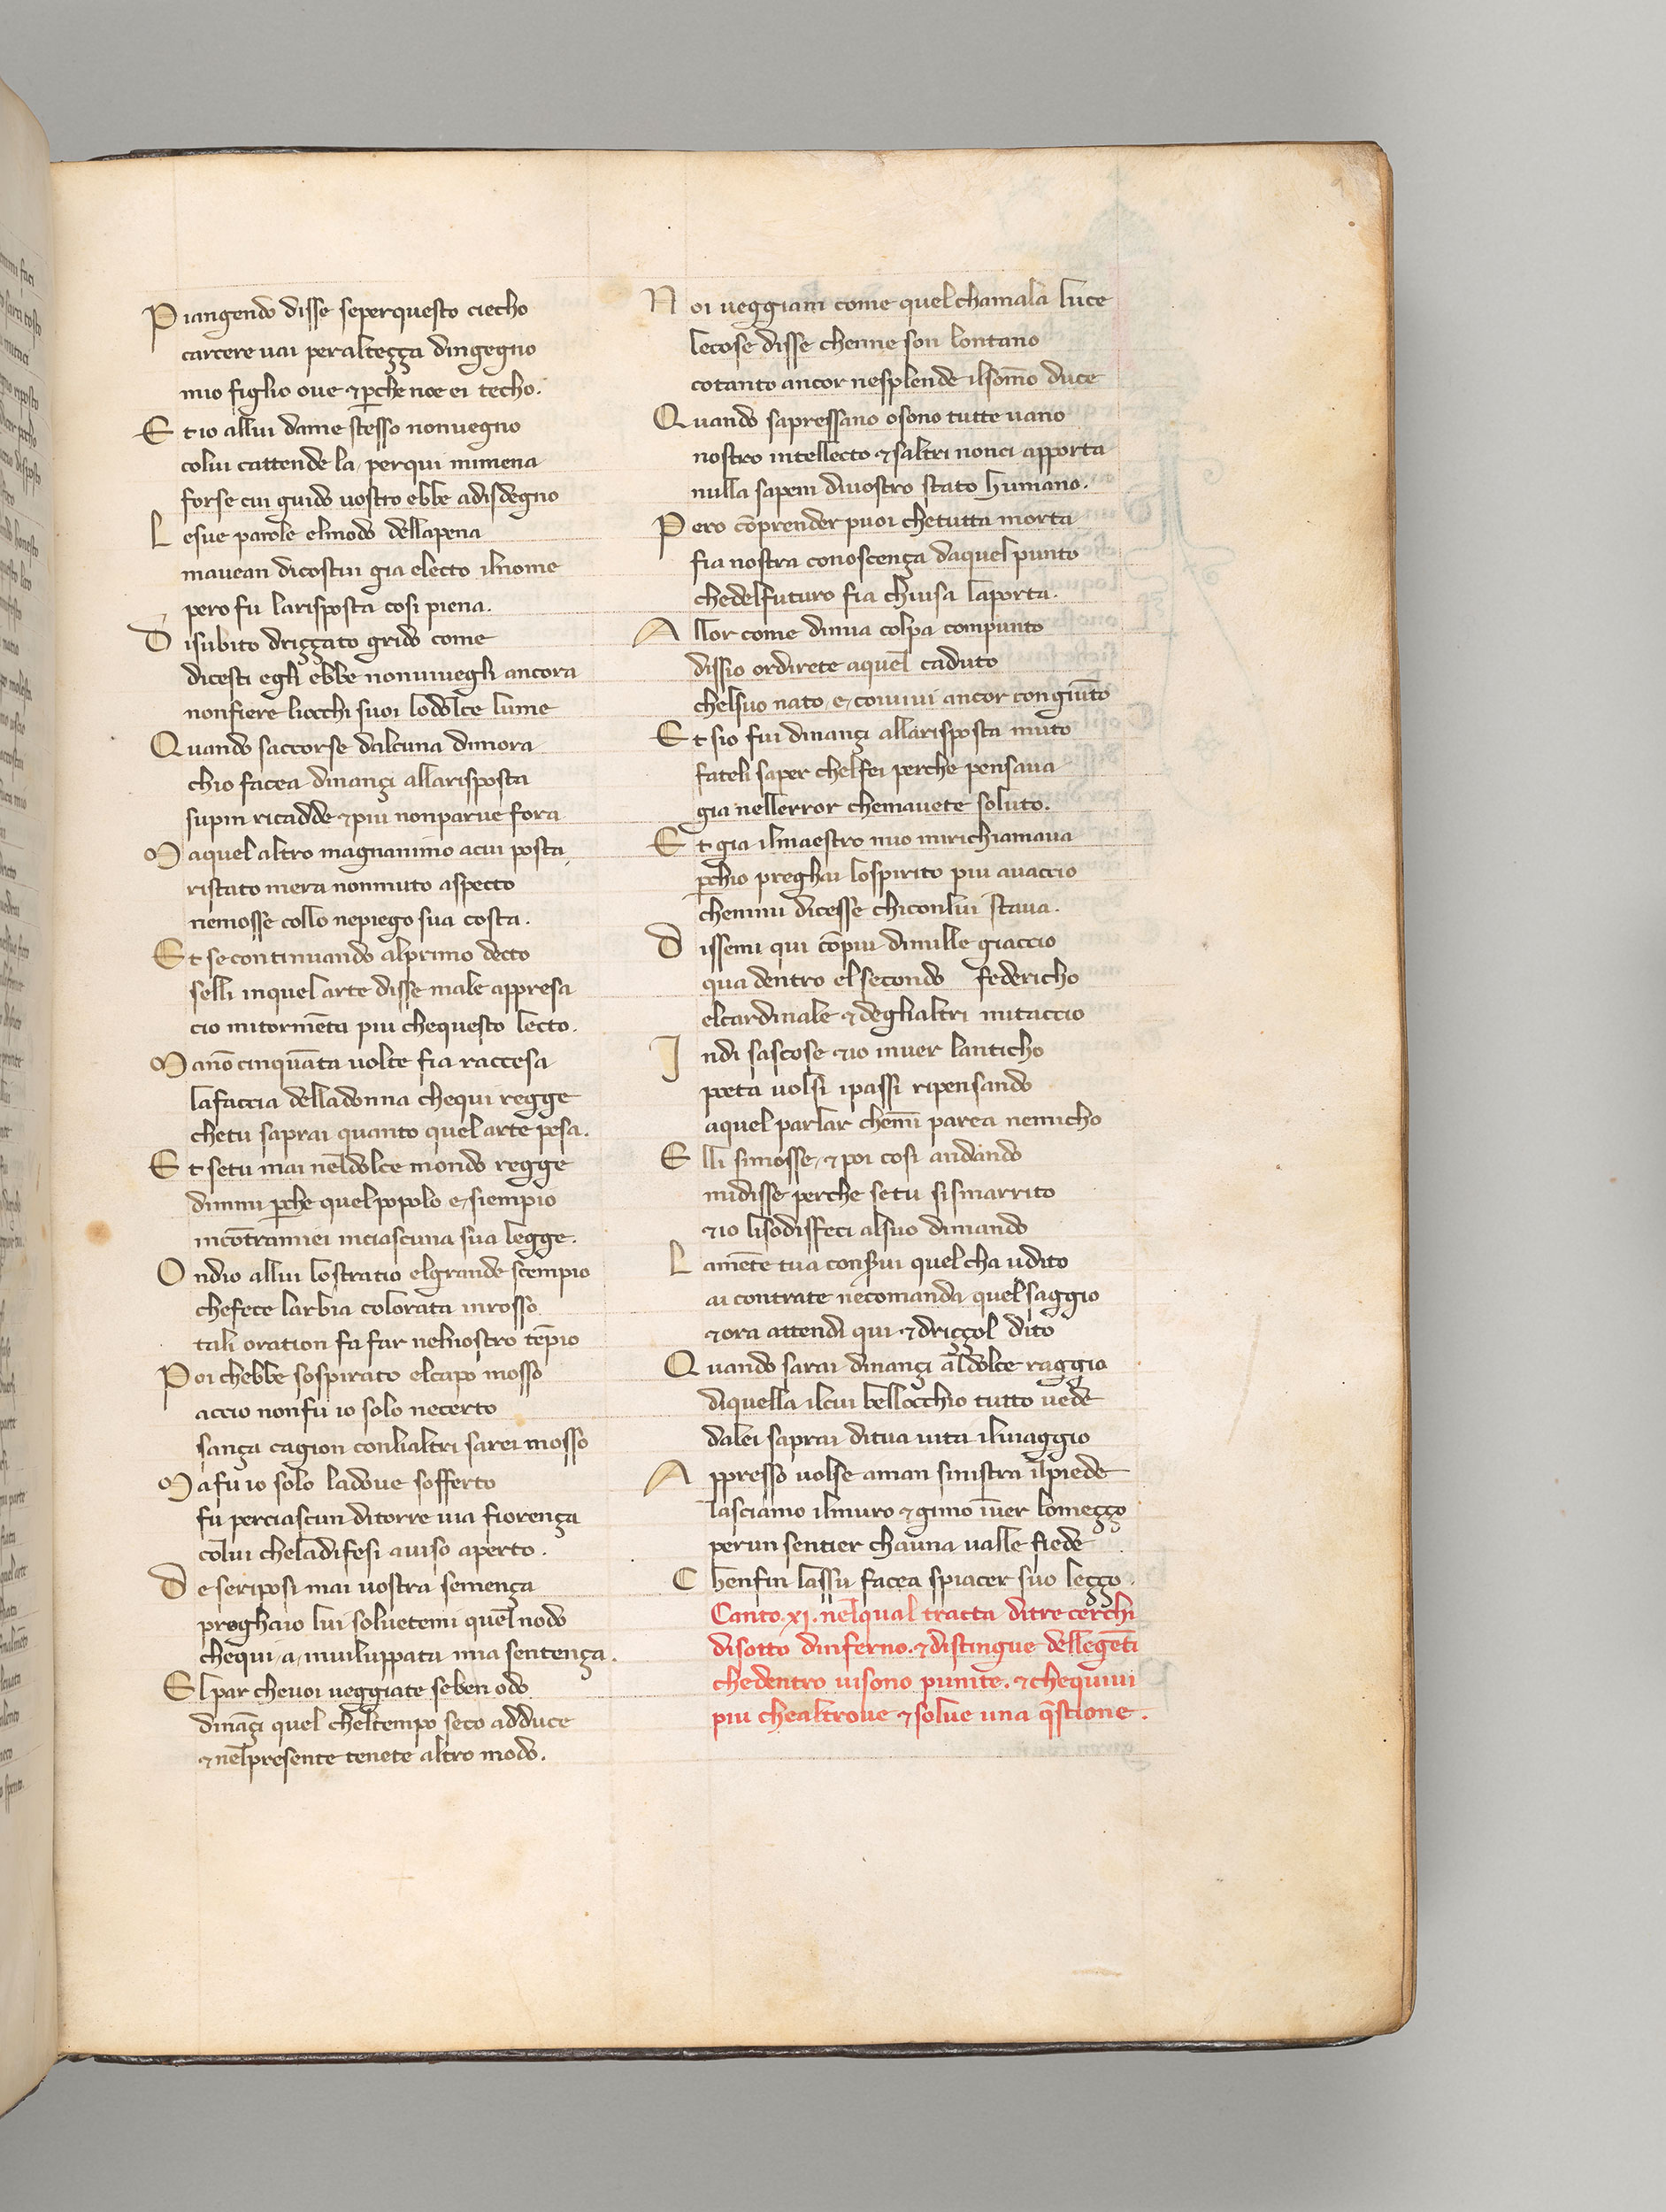 Piangendo disse seperquesto ciecho
carcere uai peralteçça dingegno
mio figlio oue ⁊ p̄che noe ei techo.
Et io allui dame stesso nonuegno
colui cattende la, perqui mimena
forse cui guido uostro ebbe adisdegno
Lesue parole elmodo dellapena
mauean dicostui gia electo ilnome
pero fu larisposta cosi piena.
Disubito driççato grido come
dicesti egli ebbe nonuiuegli ancora
nonfiere liocchi suoi lodolce lume
Quando saccorse dalcuna dimora
chio facea dinançi allarisposta
supin ricadde ⁊ piu nonparue fora
Maquel altro magnanimo acui posta
ristato mera nonmuto aspecto
nemosse collo nepiego sua costa.
Et se continuando alprimo decto
selli inquel arte disse male appresa
cio mitormēta piu chequesto lecto.
Manō cinquāta uolte fia raccesa
lafaccia delladonna chequi regge
chetu saprai quanto quel arte pesa.
Et setu mai neldolce mondo regge
dimmi p̄che quel popolo e, siempio
incōtramiei inciascuna sua legge.
Ondio allui lostratio elgrande scempio
chefece larbia colorata inrosso
tali oration fa far nelnostro tēpio
Poi chebbe sospirato elcapo mosso
accio nonfu io solo necerto
sança cagion conlialtri sarei mosso
Mafu io solo ladoue sofferto
fu perciascun ditorre uia fiorença
colui cheladifesi auiso aperto.
De seriposi mai uostra semença
preghaio lui soluetemi quel nodo
chequi a, inuiluppata mia sentença.
El par cheuoi ueggiate seben odo
dināçi quel cheltempo seco adduce
⁊ nelpresente tenete altro modo.
Noi ueggiam come quel chamala luce
lecose disse chenne son lontano
cotanto ancor nesplende ilsom̄o duce
Quando sapressano osono tutte uano
nostro intellecto ⁊ saltri nonci apporta
nulla sapem diuostro stato humano.
Pero cōprender puoi chetutta morta
fia nostra conoscença daquel punto
chedelfuturo fia chiusa laporta.
Allor come dimia colpa compunto
dissio ordirete aquel caduto
chelsuo nato, e, couiui ancor congiunto
Et sio fui dinançi allarisposta muto
fateli saper chelfei perche pensaua
gia nellerror chemauete soluto.
Et gia ilmaestro mio mirichiamaua
p̄chio preghai lospirito piu auaccio
chemmi dicesse chiconlui staua.
Dissemi qui cōpiu dimille giaccio
qua dentro elsecondo federicho
elcardinale ⁊ deglialtri mitaccio
Indi sascose ⁊ io inuer lanticho
poeta uolsi ipassi ripensando
aquel parlar chem̄i parea nemicho
Elli simosse, ⁊ poi cosi andando
midisse perche setu sismarrito
⁊ io lisodisfeci alsuo dimando
Lamēte tua conserui quel cha udito
ai contrate necomanda quel saggio
⁊ ora attendi qui ⁊ driççol dito
Quando sarai dinançi aldolce raggio
diquella ilcui bellocchio tutto uede
dalei saprai ditua uita iluiaggio
Appresso uolse aman sinistra ilpiede
lasciamo ilmuro ⁊ gimo īuer lomeçço
perun sentier chauna ualle fiede
Chenfin lassu facea spiacer suo leçço.
Canto .xj. nelqual tracta ditre cerchi
disotto dinferno. ⁊ distingue dellegēti
chedentro uisono punite. ⁊ chequiui
piu chealtroue ⁊ solue una q̄stione.